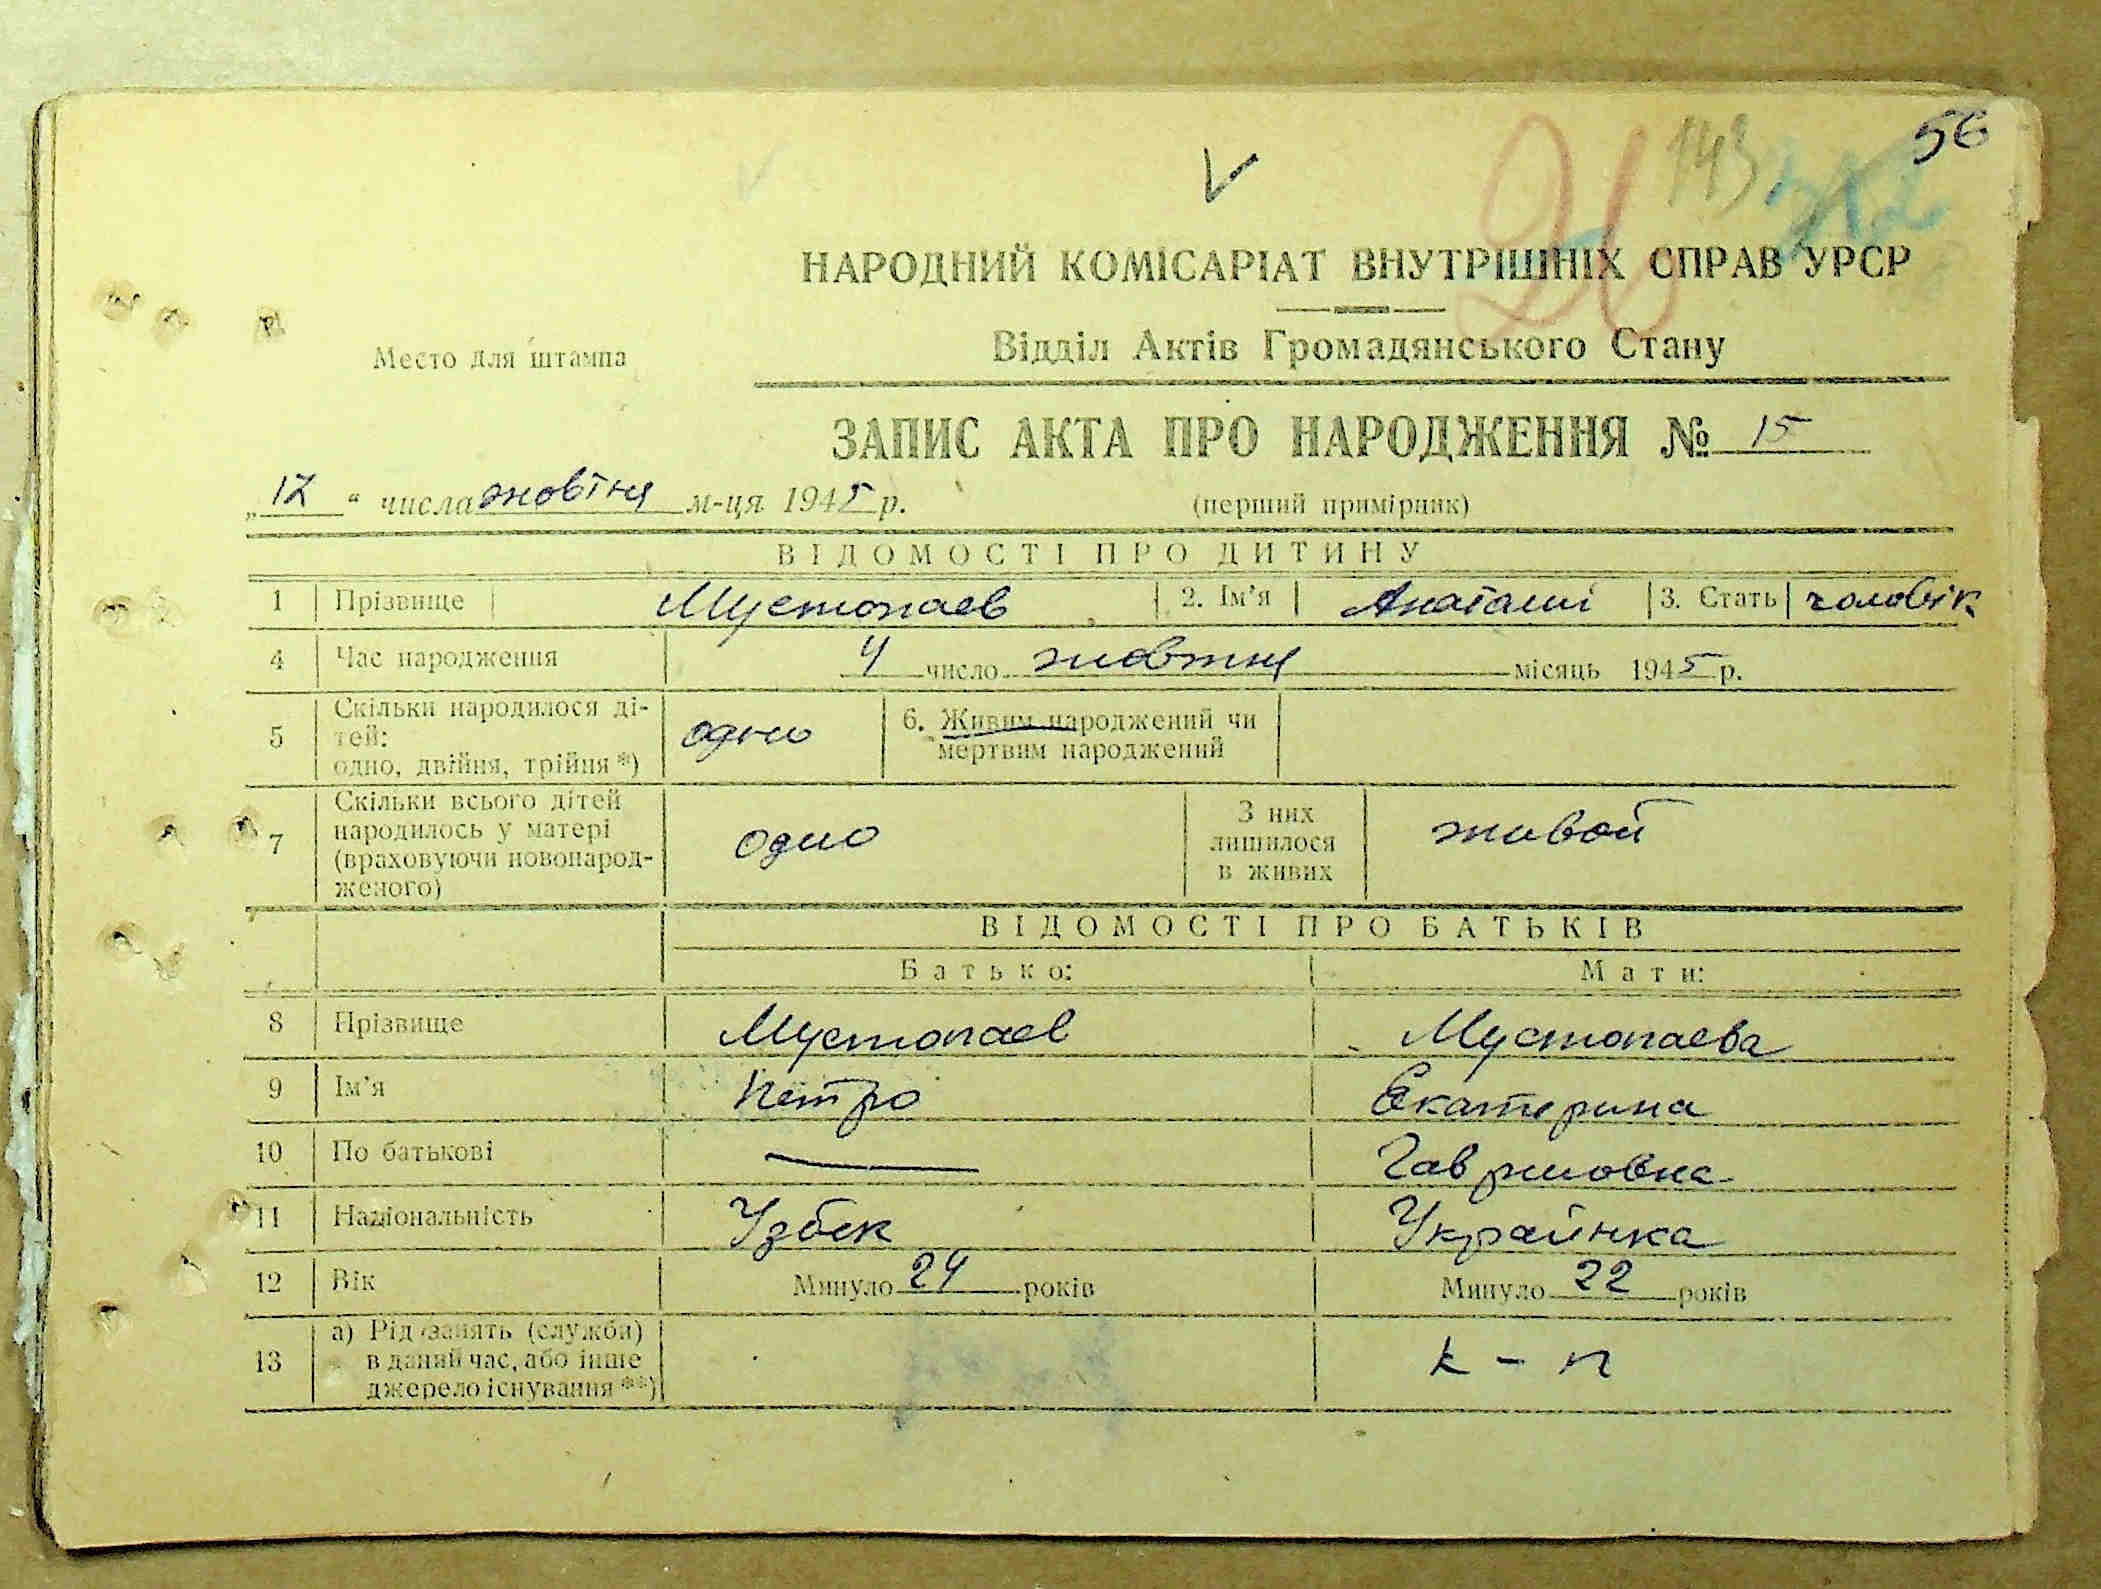 56
143
26
НАРОДНИЙ КОМІСАРІАТ ВНУТРІШНІХ СПРАВ УРСР
Место для штампа
Відділ Актів Громадянського Стану
ЗАПИС АКТА ПРО НАРОДЖЕННЯ № 15
„12“ числа жовтня м-ця 1945 р. (перший примірник)
ВІДОМОСТІ ПРО ДИТИНУ
1 Прізвище Мустопаев 2. Ім’я Анаталиі 3. Стать чоловік
4 Час народження 4 число жовтня місяць 1945 р.
5 Скільки народилося ді-
тей:
одно, двійня, трійня *) одно 6. Живим народжений чи
мертвим народжений
7 Скільки всього дітей
народилось у матері
(враховуючи новонарод-
женого) одно З них
лишилося
в живих живой
ВІДОМОСТІ ПРО БАТЬКІВ
Батько: Мати:
8 Прізвище Мустопаев Мустопаева
9 Ім’я Петро Екатерина
10 По батькові — Гавриловна
11 Національність Узбек Украйнка
12 Вік Минуло 24 років Минуло 22 років
13 а) Рід занять (служби)
в даний час, або інше
джерело існування **) к-п